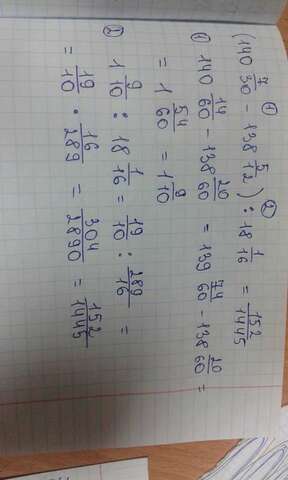 (140 7/30 - 138 5/12) : 18 1/16 = 152/1445
1) 140 14/60 - 138 20/60 = 139 74/60 - 138 20/60 =
= 1 54/60 = 1 9/10
2) 1 9/10 : 18 1/16 = 19/10 : 289/16 =
= 19/10 · 16/289 = 304/2890 = 152/1445